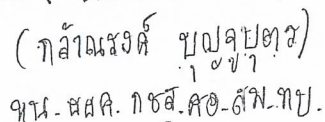 (กล้าณรงค์ บุญจูบุตร)
หน.ฝสค.กชส.ศอ.สม.ทบ.